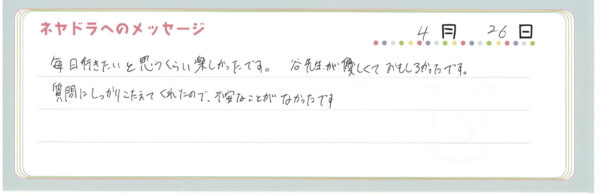 ネヤドラへのメッセージ
4月 26日
毎日行きたいと思うくらい楽しかったです。 谷先生が優しくておもしろかったです。
質問にしっかりこたえてくれたので、不安なことがなかったです